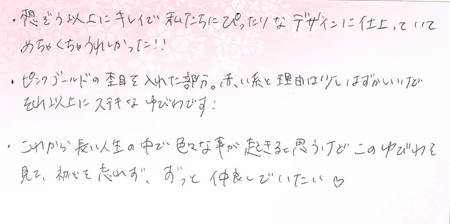 ・想ぞう以上にキレイで私たちにぴったりなデザインに仕上っていて
めちゃくちゃうれしかった!!
・ピンクゴールドの杢目を入れた部分。赤い糸と理由は少しはずかしいけど
それ以上にステキなゆびわです:
・これから長い人生の中で色々な事が起きると思うけどこのゆびわを
見て、初心を忘れず、ずっと仲良しでいたい♡